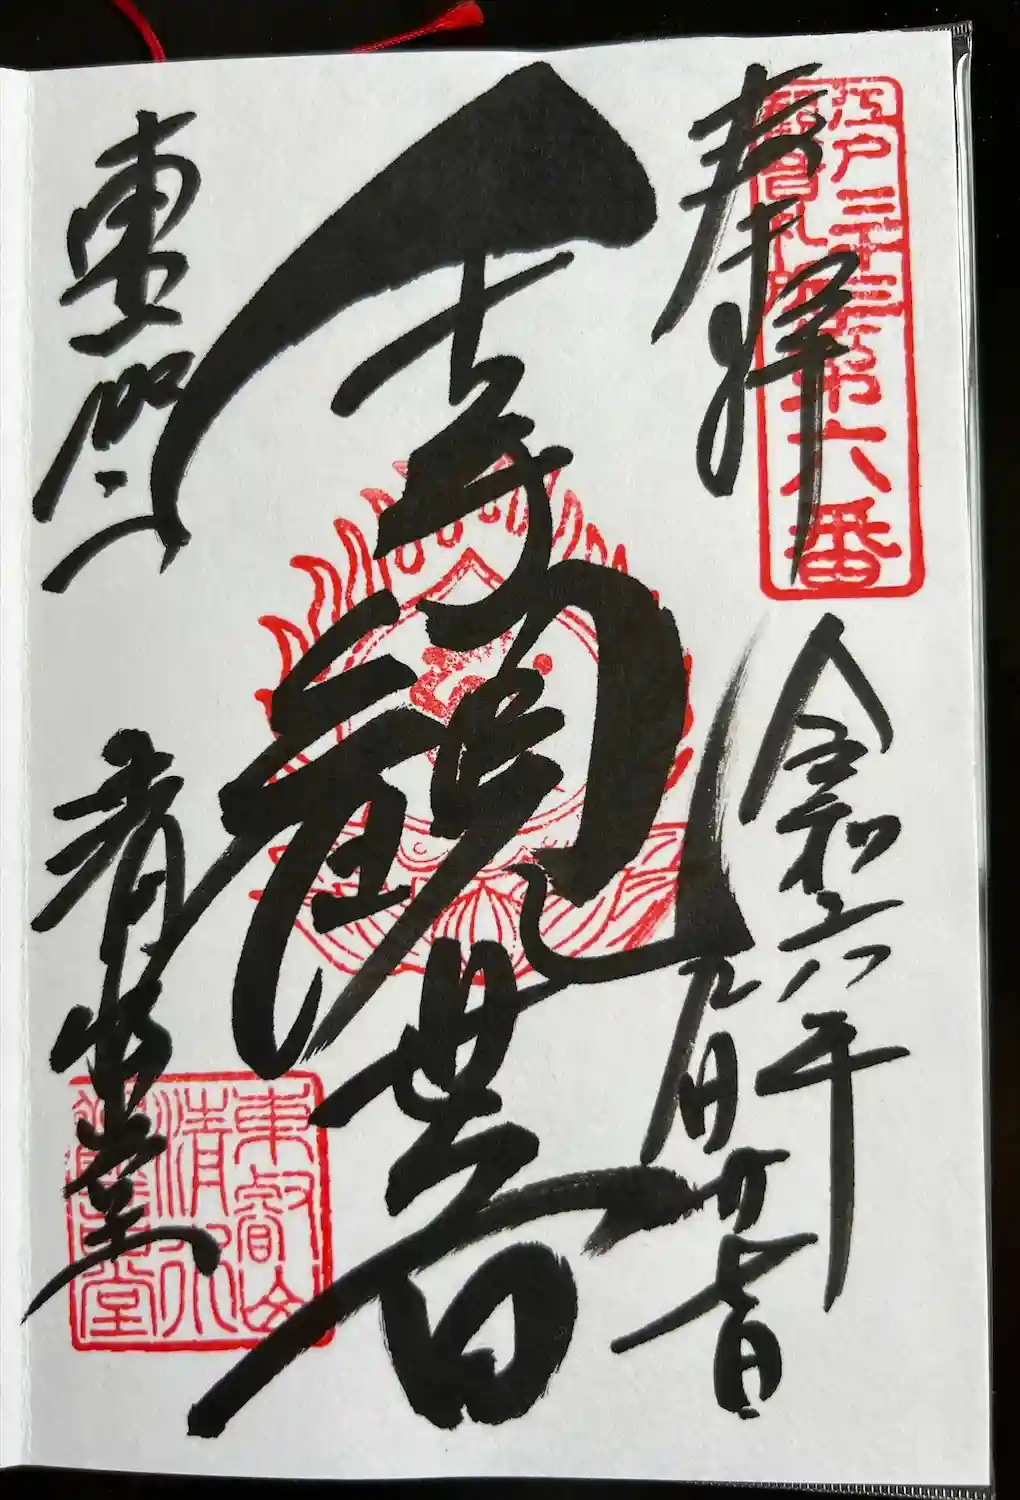 江戸三十三
観音札所
第六番
奉拝
令和六年
九月
千手観世音
東叡山
清水堂
東叡山
清水
観音堂